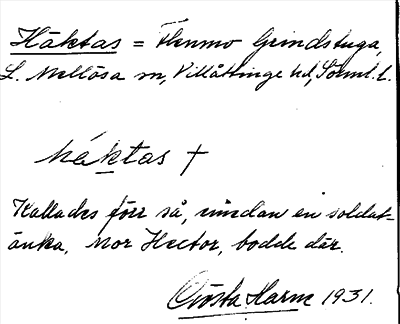 Häktas = Flenmo Grindstuga,
L. Mellösa sn, Villåttinge hd, Sörml. l.
häktas †
Kallades förr så, medan en soldat-
änka, Mor Hector, bodde där.
Gösta Harne 1931.